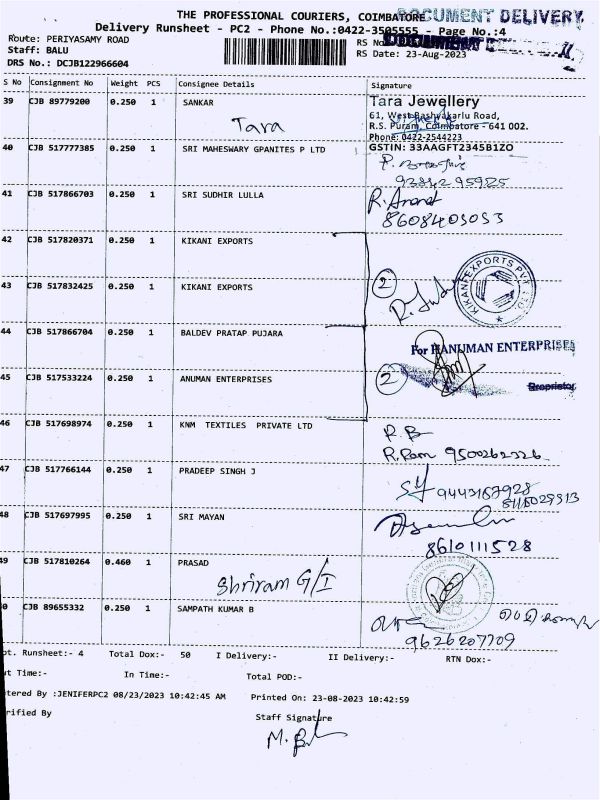 THE PROFESSIONAL COURIERS, COIMBATORE
DOCUMENT DELIVERY
Delivery Runsheet - PC2 - Phone No.:0422-3505555 - Page No.:4
Route: PERIYASAMY ROAD
RS No
DOCUMENT
Staff: BALU
RS Date: 23-Aug-2023
DRS No.: DCJB122966604
S No Consignment No Weight PCS Consignee Details Signature
39 CJB 89779200 0.250 1 SANKAR
Tara
Tara Jewellery
61, West Bashyakarlu Road,
R.S. Puram, Coimbatore - 641 002.
Phone: 0422-2544223
GSTIN: 33AAGFT2345B1ZO
40 CJB 517777385 0.250 1 SRI MAHESWARY GPANITES P LTD
41 CJB 517866703 0.250 1 SRI SUDHIR LULLA
R. Anand
8608403053
42 CJB 517820371 0.250 1 KIKANI EXPORTS
KIKANI EXPORTS PVT. LTD.
43 CJB 517832425 0.250 1 KIKANI EXPORTS
2
44 CJB 517866704 0.250 1 BALDEV PRATAP PUJARA
For HANUMAN ENTERPRISES
45 CJB 517533224 0.250 1 ANUMAN ENTERPRISES
2
Proprietor
46 CJB 517698974 0.250 1 KNM TEXTILES PRIVATE LTD
R.B
R.Ram 9500262326
47 CJB 517766144 0.250 1 PRADEEP SINGH J
9443167928
48 CJB 517697995 0.250 1 SRI MAYAN
8610111528
49 CJB 517810264 0.460 1 PRASAD
Shriram G/I
0 CJB 89655332 0.250 1 SAMPATH KUMAR B
9626207709
ot. Runsheet:- 4 Total Dox:- 50 I Delivery:- II Delivery:- RTN Dox:-
ut Time:- In Time:- Total POD:-
tered By :JENIFERPC2 08/23/2023 10:42:45 AM Printed On: 23-08-2023 10:42:59
rified By Staff Signature